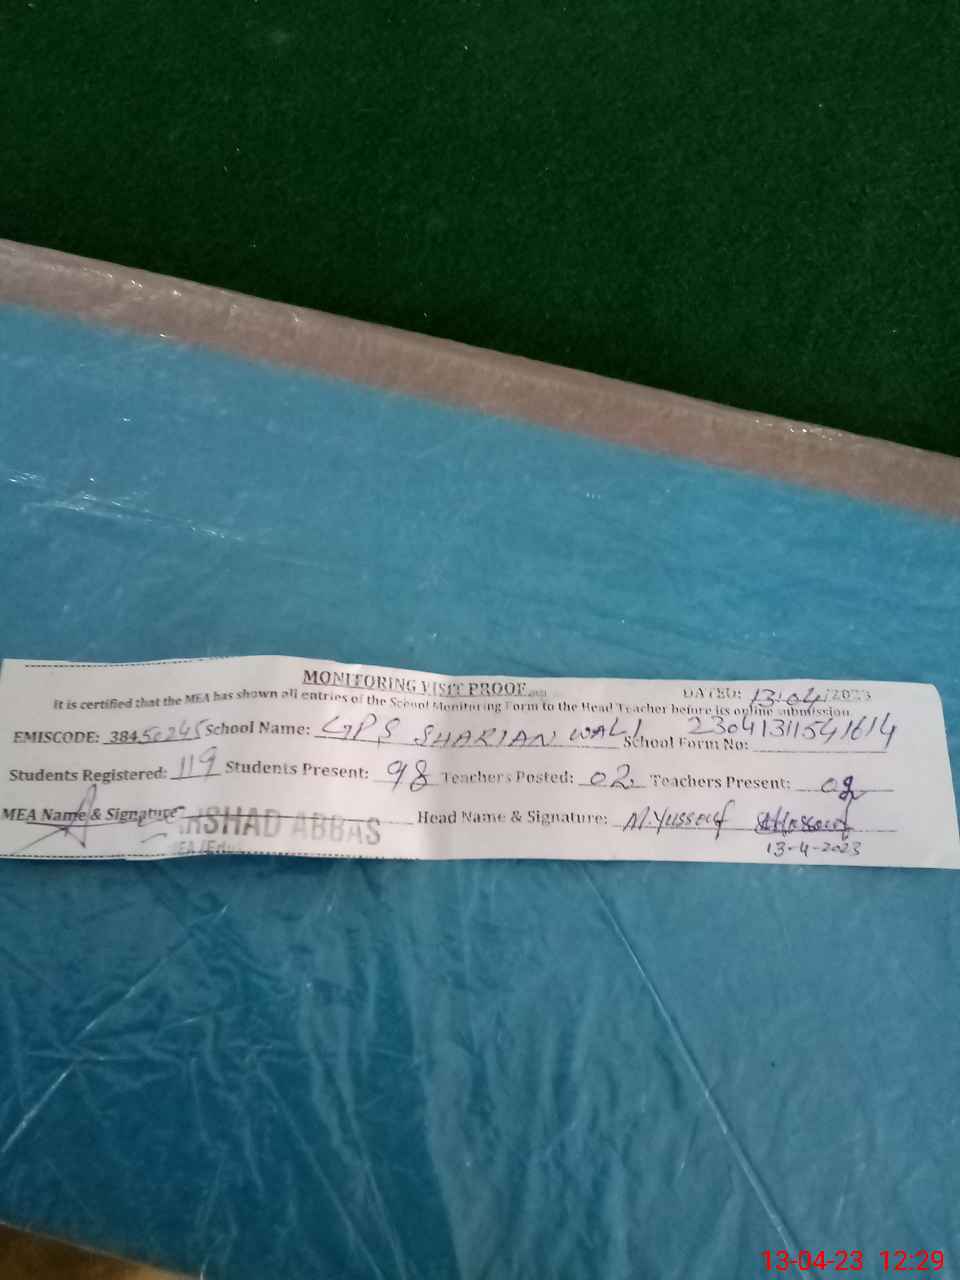 MONITORING VISIT PROOF
DATED: 13/04/2023
It is certified that the MEA has shown all entries of the School Monitoring Form to the Head Teacher before its online submission.
EMISCODE: 38450245 School Name: GPS SHARIAN WALI School Form No: 23041311541614
Students Registered: 119 Students Present: 98 Teachers Posted: 02 Teachers Present: 02
MEA Name & Signature ARSHAD ABBAS Head Name & Signature: M.Yussouf
MEA (Edu)
13-4-2023
13-04-23 12:29